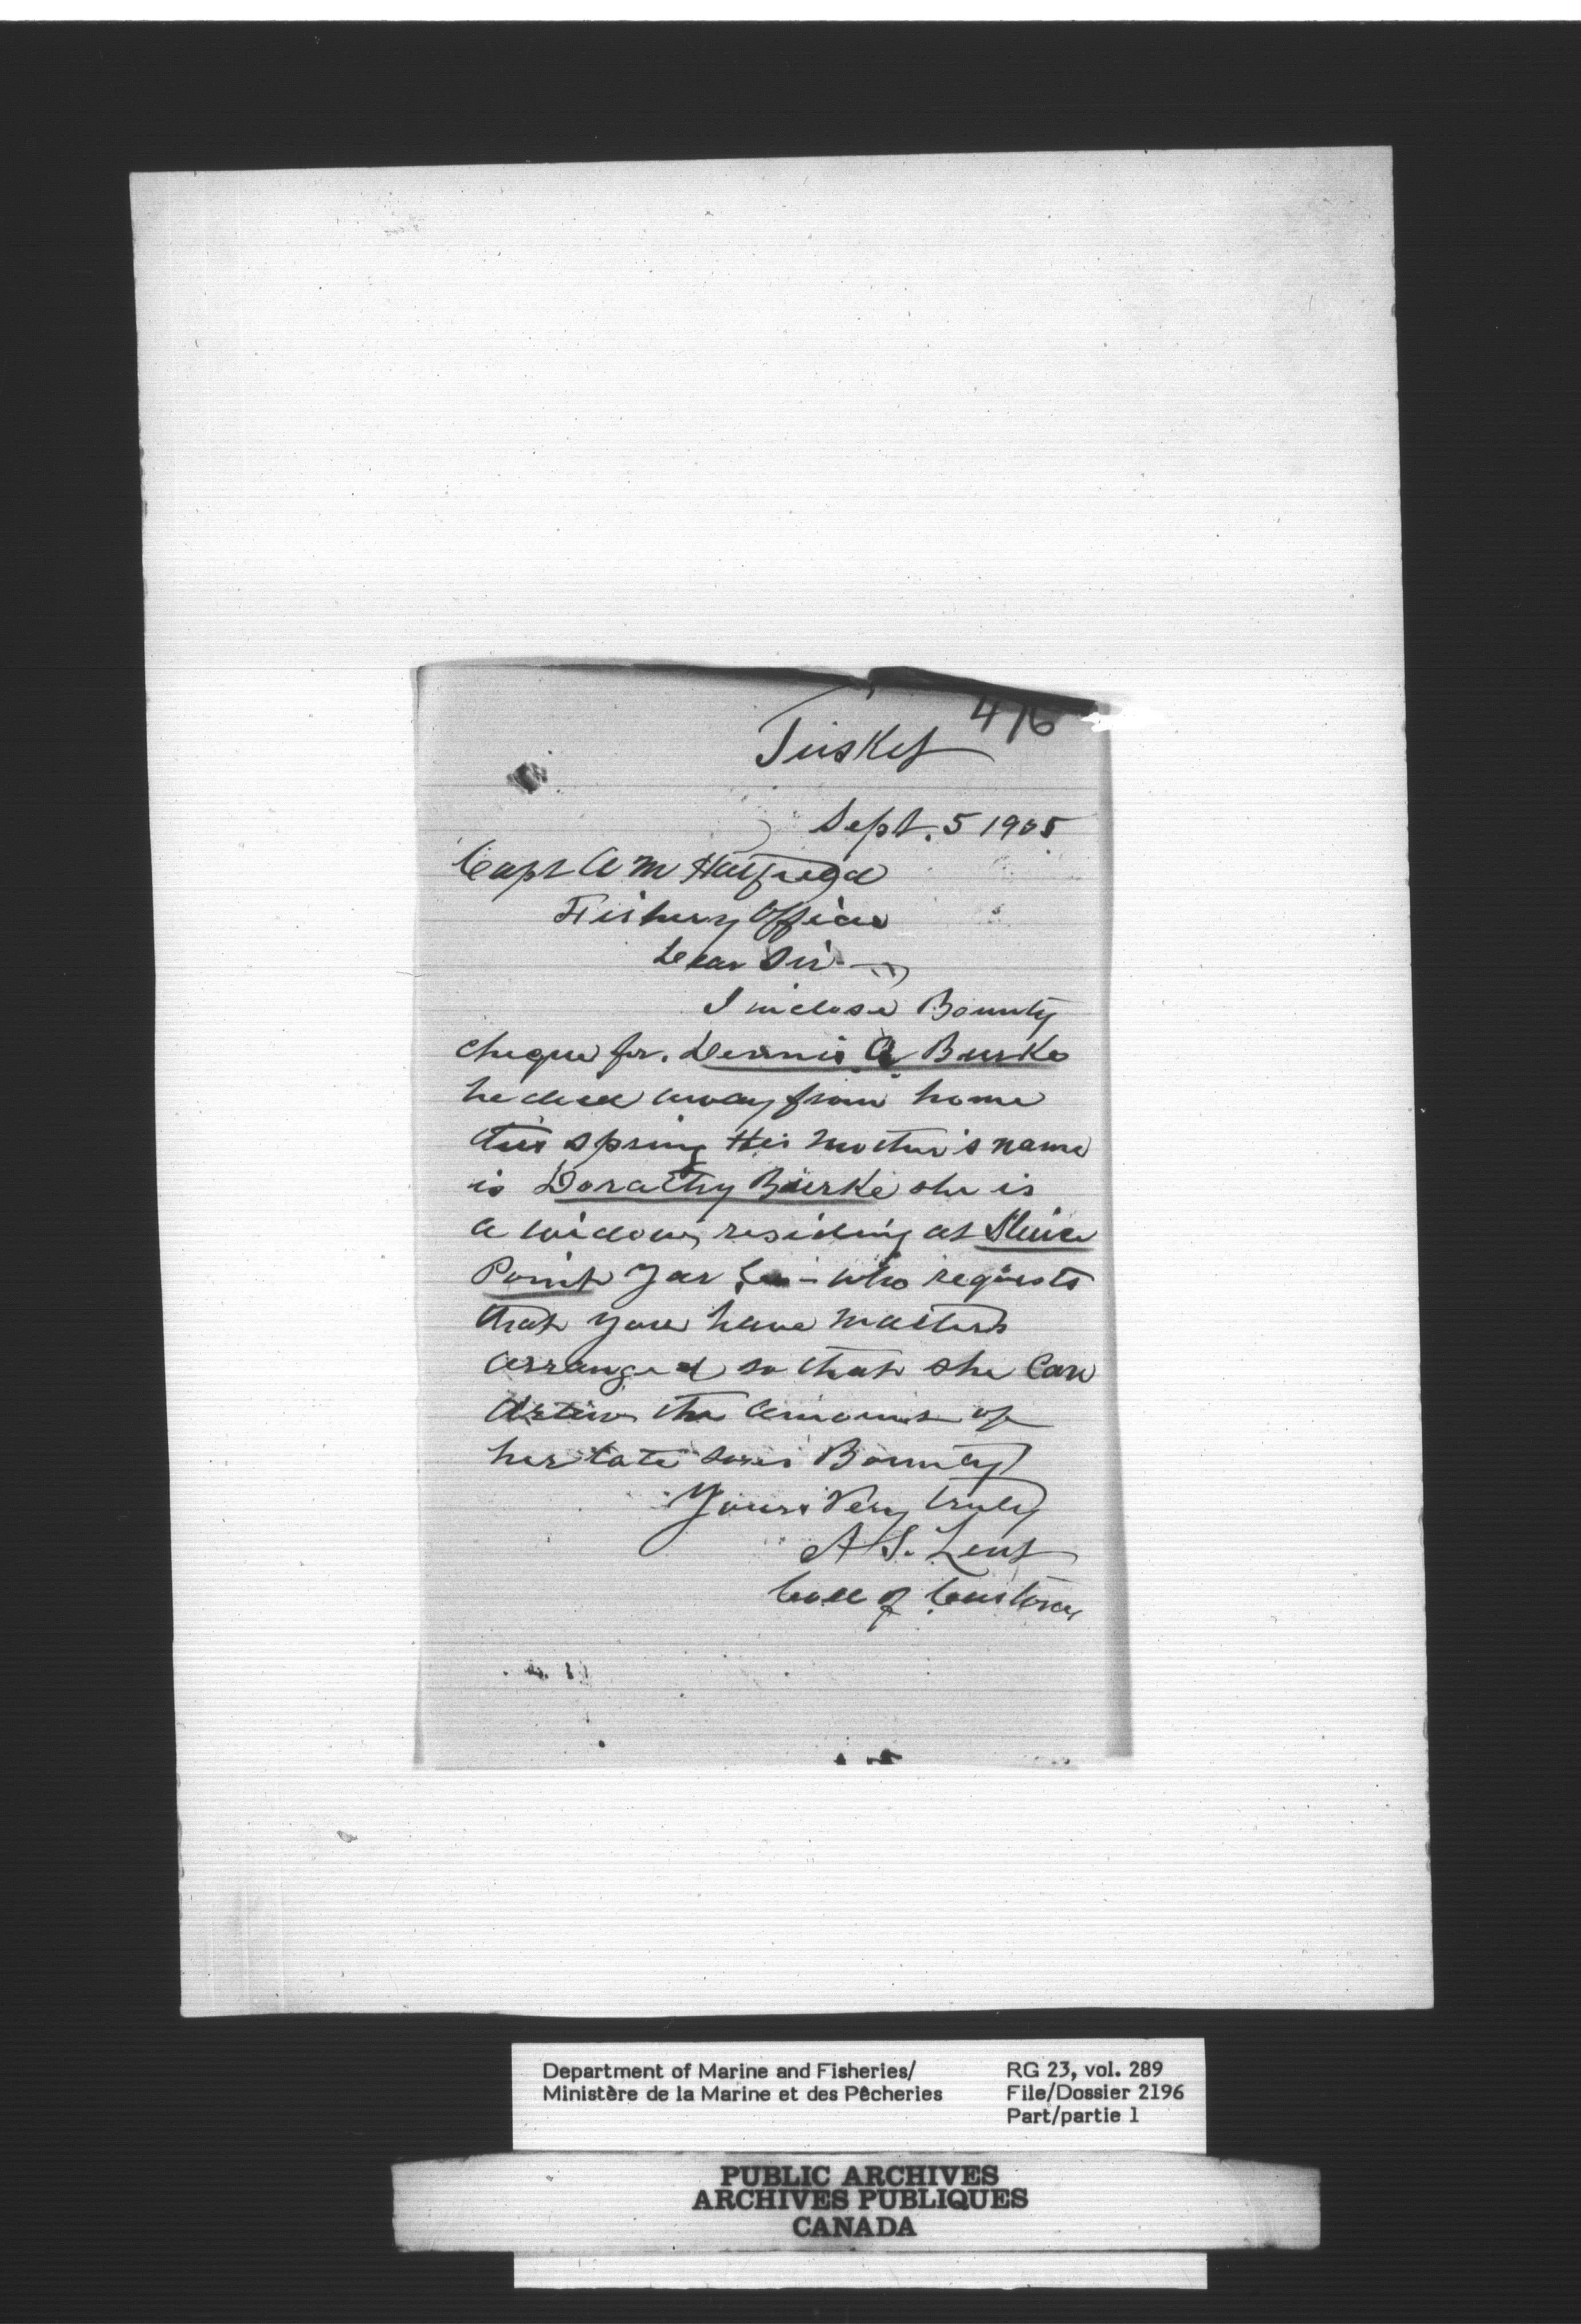 476
Tusket
Sept. 5 1905
Capt A M Hatfield
Fishery Officer
Dear Sir -
I inclose Bounty
cheque for. Dennis A Burke
he died away from home
this spring His Mother's name
is Dorathy Burke she is
a widow, residing at Sluice
Point Yar - who requests
that you have matters
arranged so that she Can
draw the amount of
her late sons Bounty
Yours Very truly
A S. Lent
Coll of Customs
Department of Marine and Fisheries/
Ministère de la Marine et des Pêcheries
RG 23, vol. 289
File/Dossier 2196
Part/partie 1
PUBLIC ARCHIVES
ARCHIVES PUBLIQUES
CANADA